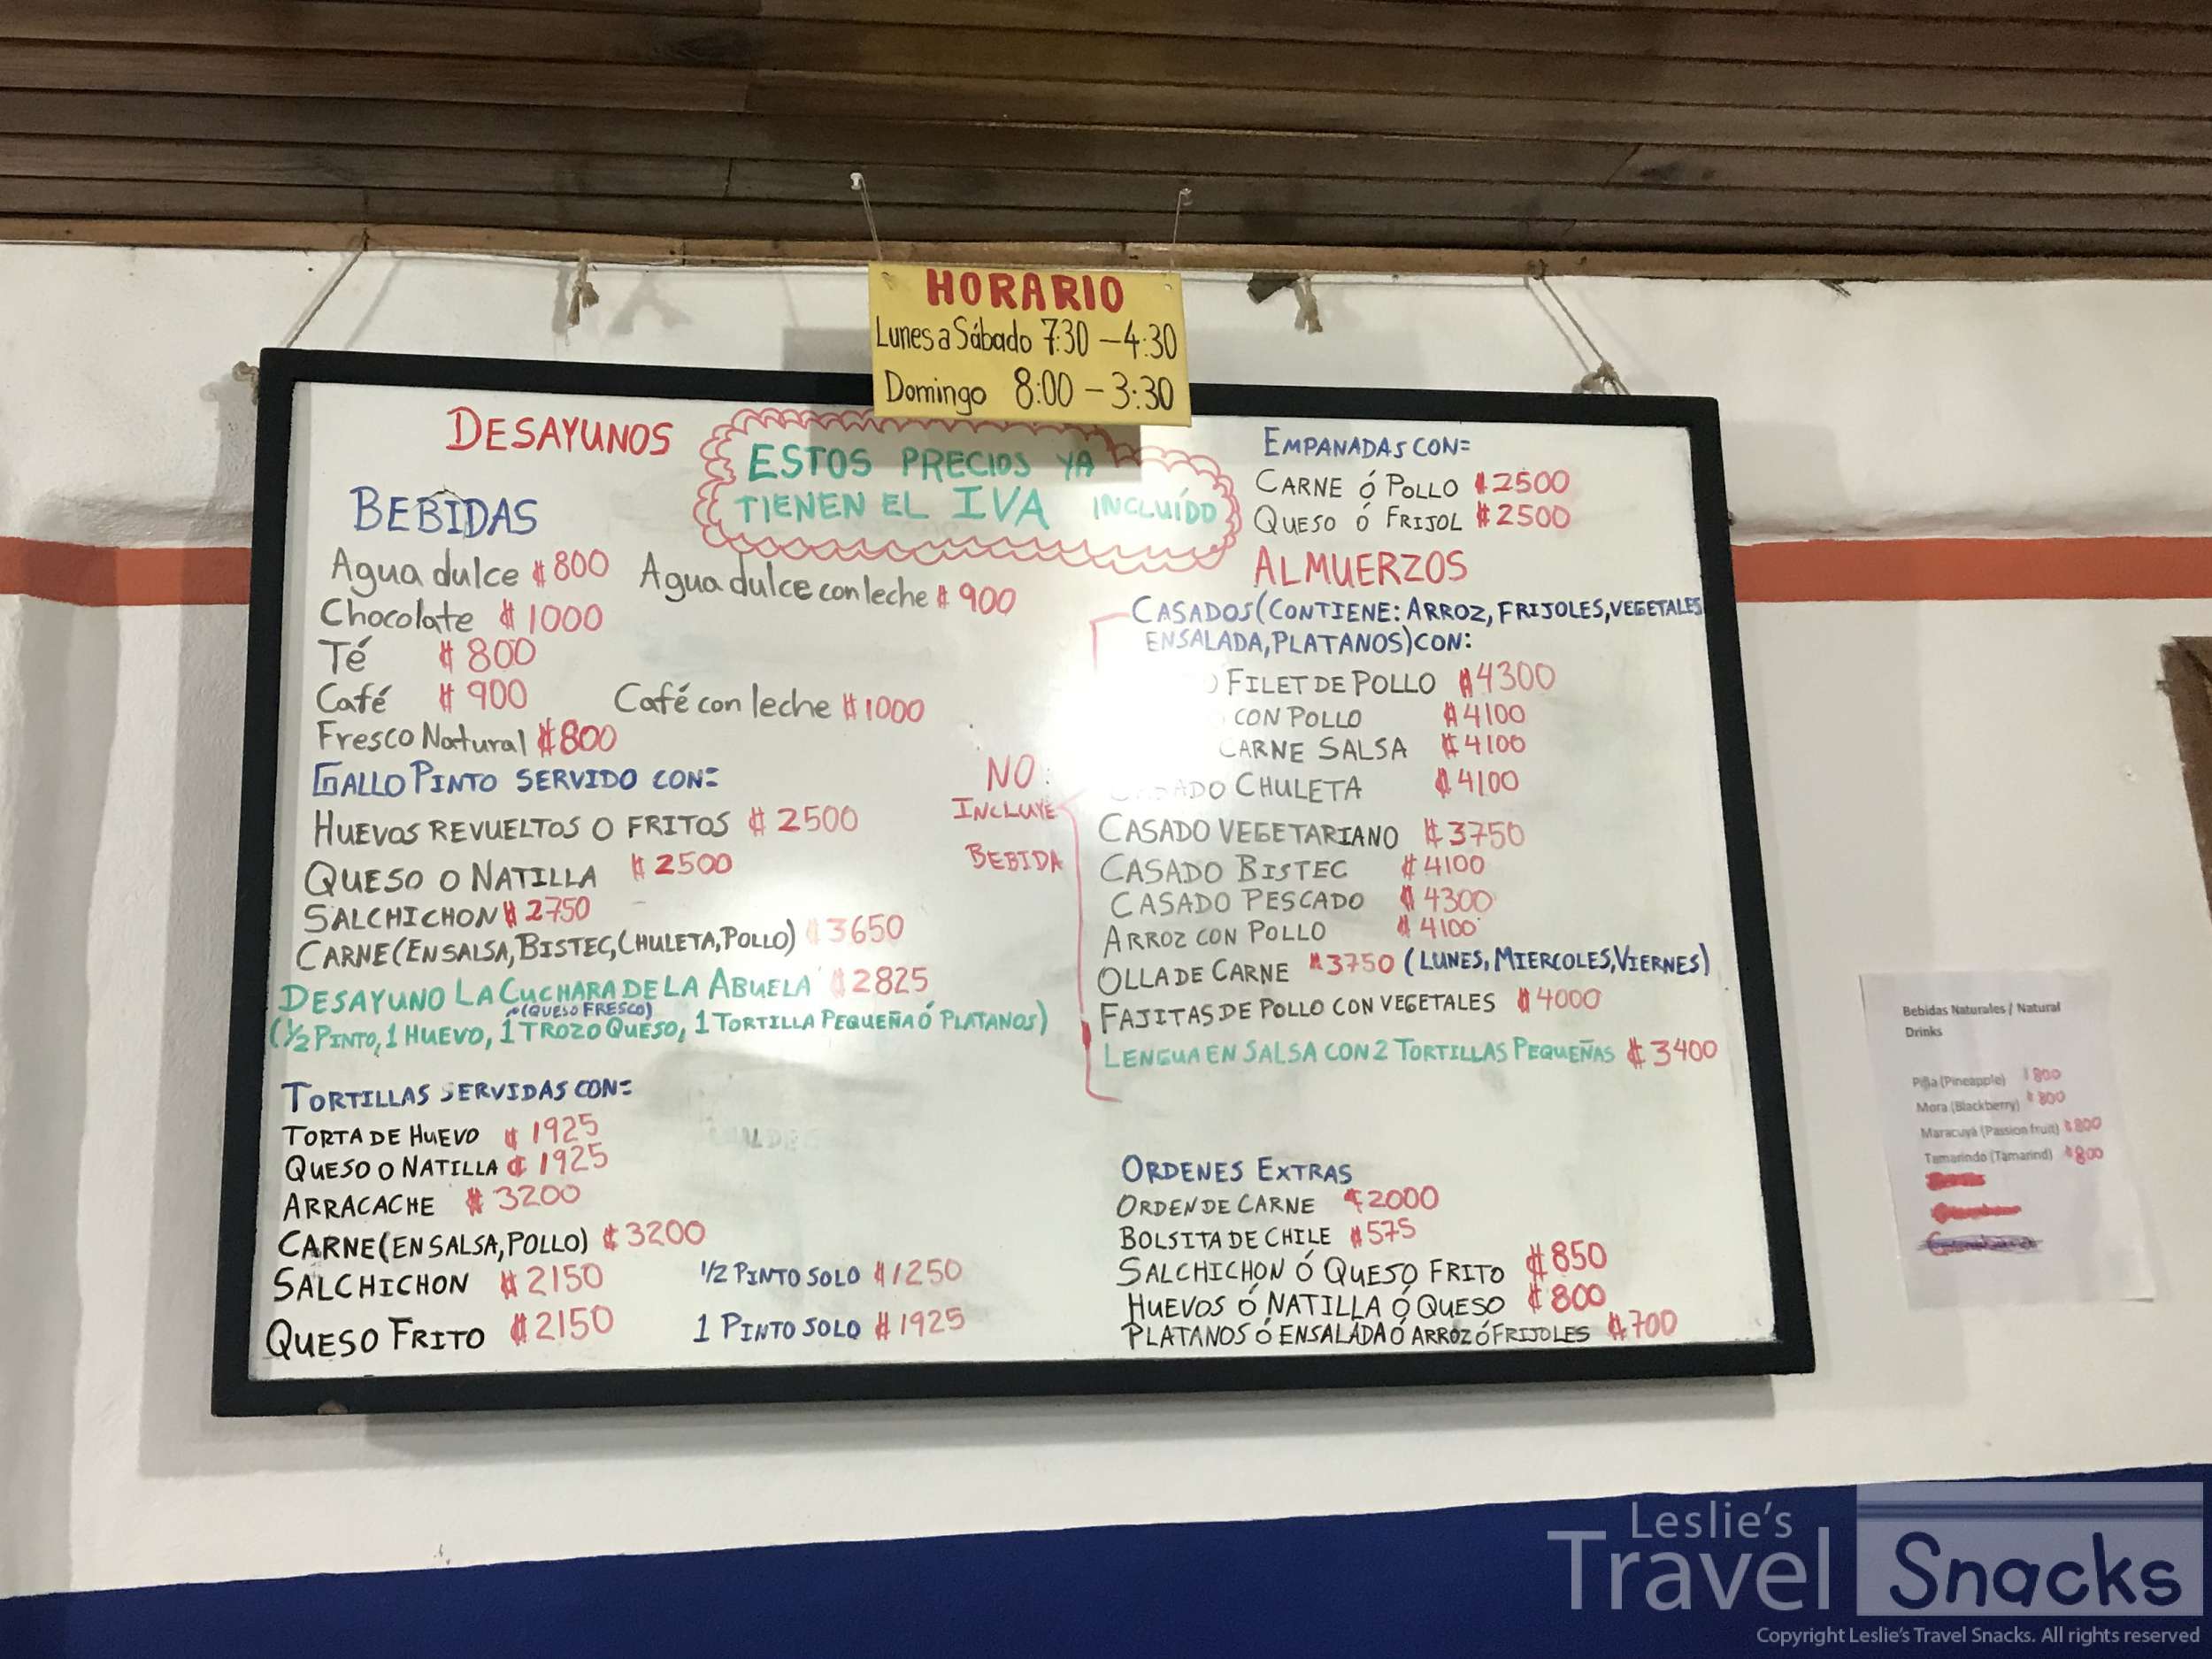 HORARIO
Lunes a Sábado 7:30 – 4:30
Domingo 8:00 – 3:30
DESAYUNOS
ESTOS PRECIOS YA
TIENEN EL IVA INCLUÍDO
BEBIDAS
Agua dulce ₡800 Agua dulce con leche ₡900
Chocolate ₡1000
Té ₡800
Café ₡900 Café con leche ₡1000
Fresco Natural ₡800
GALLO PINTO SERVIDO CON=
HUEVOS REVUELTOS O FRITOS ₡2500
QUESO O NATILLA ₡2500
SALCHICHON ₡2750
CARNE (EN SALSA, BISTEC, CHULETA, POLLO) ₡3650
DESAYUNO LA CUCHARA DE LA ABUELA ₡2825
(QUESO FRESCO)
(½ PINTO, 1 HUEVO, 1 TROZO QUESO, 1 TORTILLA PEQUEÑA Ó PLATANOS)
TORTILLAS SERVIDAS CON=
TORTA DE HUEVO ₡1925
QUESO O NATILLA ₡1925
ARRACACHE ₡3200
CARNE (EN SALSA, POLLO) ₡3200
SALCHICHON ₡2150 ½ PINTO SOLO ₡1250
QUESO FRITO ₡2150 1 PINTO SOLO ₡1925
EMPANADAS CON=
CARNE Ó POLLO ₡2500
QUESO Ó FRIJOL ₡2500
ALMUERZOS
CASADOS (CONTIENE: ARROZ, FRIJOLES, VEGETALES
ENSALADA, PLATANOS) CON:
FILET DE POLLO ₡4300
CON POLLO ₡4100
CARNE SALSA ₡4100
CHULETA ₡4100
NO
INCLUYE
BEBIDA
CASADO VEGETARIANO ₡3750
CASADO BISTEC ₡4100
CASADO PESCADO ₡4300
ARROZ CON POLLO ₡4100
OLLA DE CARNE ₡3750 (LUNES, MIERCOLES, VIERNES)
FAJITAS DE POLLO CON VEGETALES ₡4000
LENGUA EN SALSA CON 2 TORTILLAS PEQUEÑAS ₡3400
ORDENES EXTRAS
ORDEN DE CARNE ₡2000
BOLSITA DE CHILE ₡575
SALCHICHON Ó QUESO FRITO ₡850
HUEVOS Ó NATILLA Ó QUESO ₡800
PLATANOS Ó ENSALADA Ó ARROZ Ó FRIJOLES ₡700
Bebidas Naturales / Natural
Drinks
Piña (Pineapple) ₡800
Mora (Blackberry) ₡800
Maracuyá (Passion fruit) ₡800
Tamarindo (Tamarind) ₡800
Leslie's
Travel Snacks
Copyright Leslie's Travel Snacks. All rights reserved